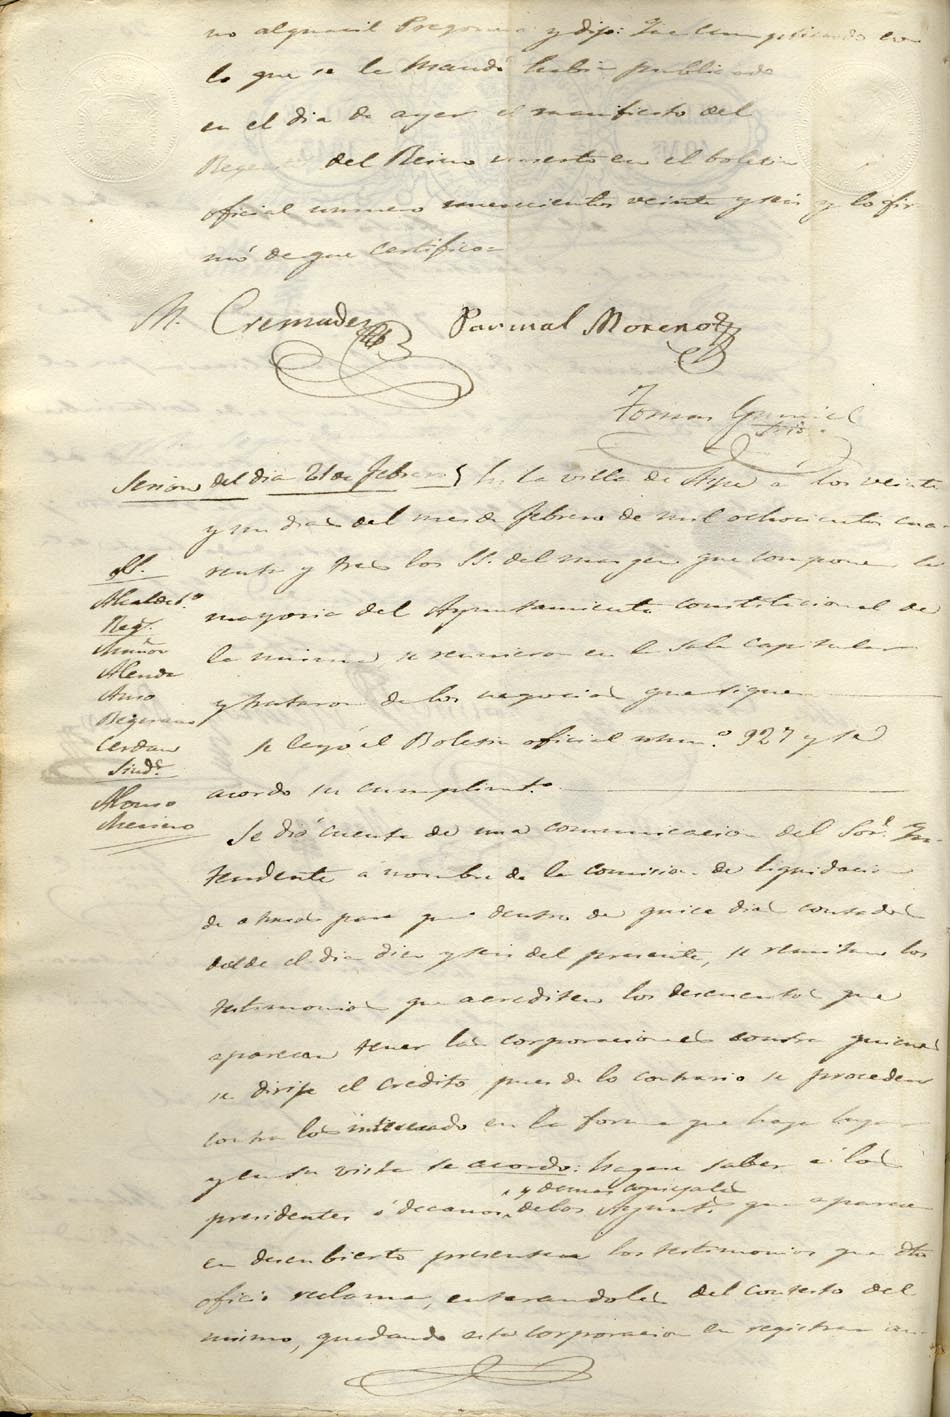 no alguacil Pregonero y dijo: Que cumpliendo con
lo que se le mandó habia publicado
en el dia de ayer el manifiesto del
Regente del Reino inserto en el boletin
oficial numero nuevecientos veinte y seis y lo fir
mó de que certifico
M. Cremades Pascual Moreno
Tomas
Srio.
Sesion del dia 21 de febrero En la villa de Aspe a los veinte
y un dias del mes de febrero de mil ochocientos cua-
renta y tres los SS. del margen que componen la
mayoria del Ayuntamiento constitucional de
la misma, se reunieron en la sala capitular
y trataron de los negocios que siguen
SS.
Alcalde 1.º
Reg.s
Muñoz
Alenda
Cerdan
Sind.s
Alonso
se leyó el Boletin oficial num.º 927 y se
acordo su cumplim.to
Se dió cuenta de una comunicacion del Sor. In-
tendente a nombre de la comision de liquidacion
de atrasos para que dentro de quice dias contados
desde el dia diez y seis del presente, se remitan los
testimonios que acrediten los descuentos que
aparecen tener las corporaciones contra quienes
se dirije el credito, pues de lo contrario se procedera
contra los interesado en la forma que haya lugar
y en su vista se acordo: hagase saber a los
y demas conzejales
presidentes ó decanos de los Ayunt.s que aparecen
en descubierto presenten los testimonios que dho
oficio reclama, enterandoles del contesto del
mismo, quedando esta corporacion en registrar